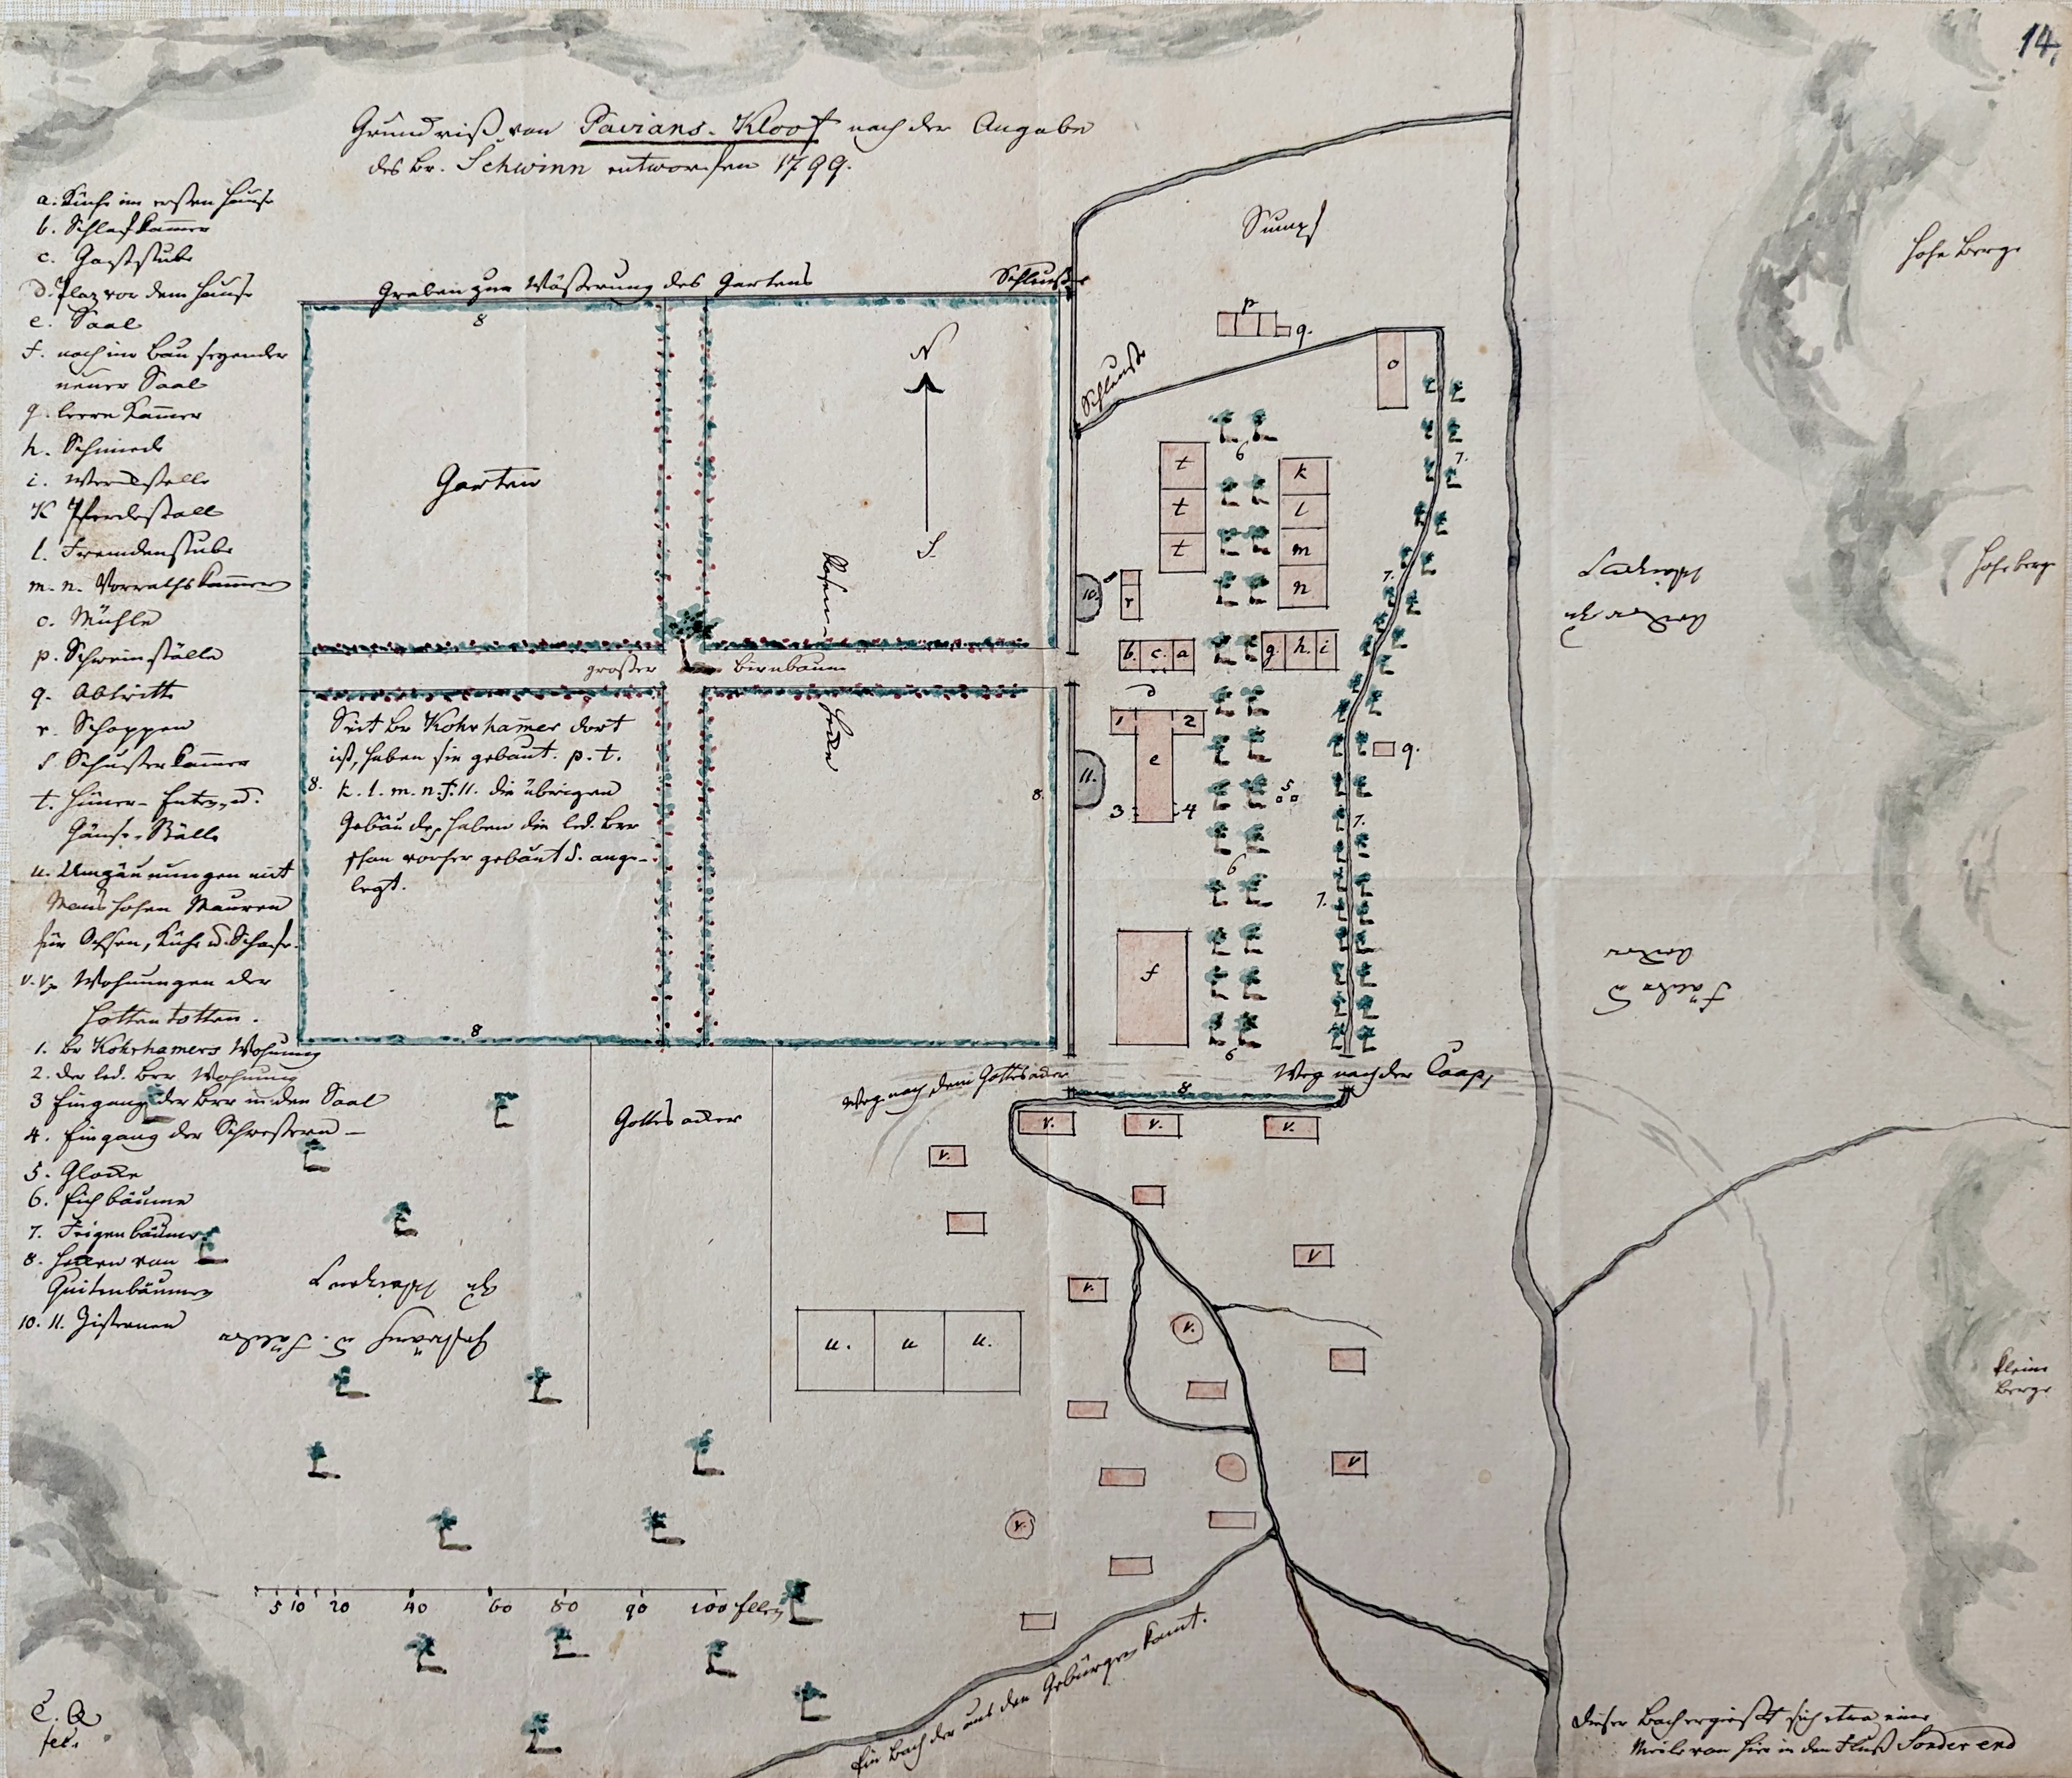 14.
Grundriß von Pavians-Kloof nach der Angabe
des Br. Schwinn entworfen 1799.
a. Küche im ersten Hause
b. Schlafkammer
c. Gaststube
d. Plaz vor dem Hause
e. Saal
f. noch im Bau seyender
neuer Saal
g. leere Kammer
h. Schmiede
i. Werckstelle
K Pferdestall
l. Fremdenstube
m. n. Vorrathskammern
o. Mühle
p. Schweinställe
q. Abtritte
r. Schoppen
s Schusterkammer
t. Hüner- Enten- u.
Gänse-Ställe
u. Umzäunungen mit
Mans hohen Mauren
für Ochsen, Kühe u. Schafe.
v. v. Wohnungen der
Hottentotten.
1. Br Kohrhamers Wohnung
2. der led. Brr Wohnung
3 Eingang der Brr in den Saal
4. Eingang der Schwestern
5. Glocke
6. Eichbäume
7. Feigenbäume
8. Hecken von
Quitenbäumen
10. 11. Zisternen
Graben zur Wäßerung des Gartens
Schleuse
8
Garten
N
S.
Rosen
Hecke
großer Birnbaum
Seit Br Kohrhamer dort
ist, haben sie gebaut. p. t.
k. l. m. n. f. 11. die übrigen
Gebäude haben die led. Brr
schon vorher gebaut u. ange-
legt.
8.
8.
8
Sumpf
Schleuse
p
q.
o
t
t
t
6
k
l
m
n
7.
7.
10.
r
b. c. a
g. h. i
d
1 2
e
11.
3 4
5
q.
7.
6
7.
f
6
Hohe Berge
Hohe berge
kleine
Berge
Weg nach dem Gottesacker
Weg nach der Caap,
8
Gottesacker
v. v. v.
v.
v
v.
v.
v
v.
u. u u.
5 10 20 40 60 80 90 100 Ellen
Ein Bach der aus den Gebürgen komt.
Dieser Bach ergießt sich etwa eine
Meile von hier in den Fluß Sonder end
C. Q
fec.